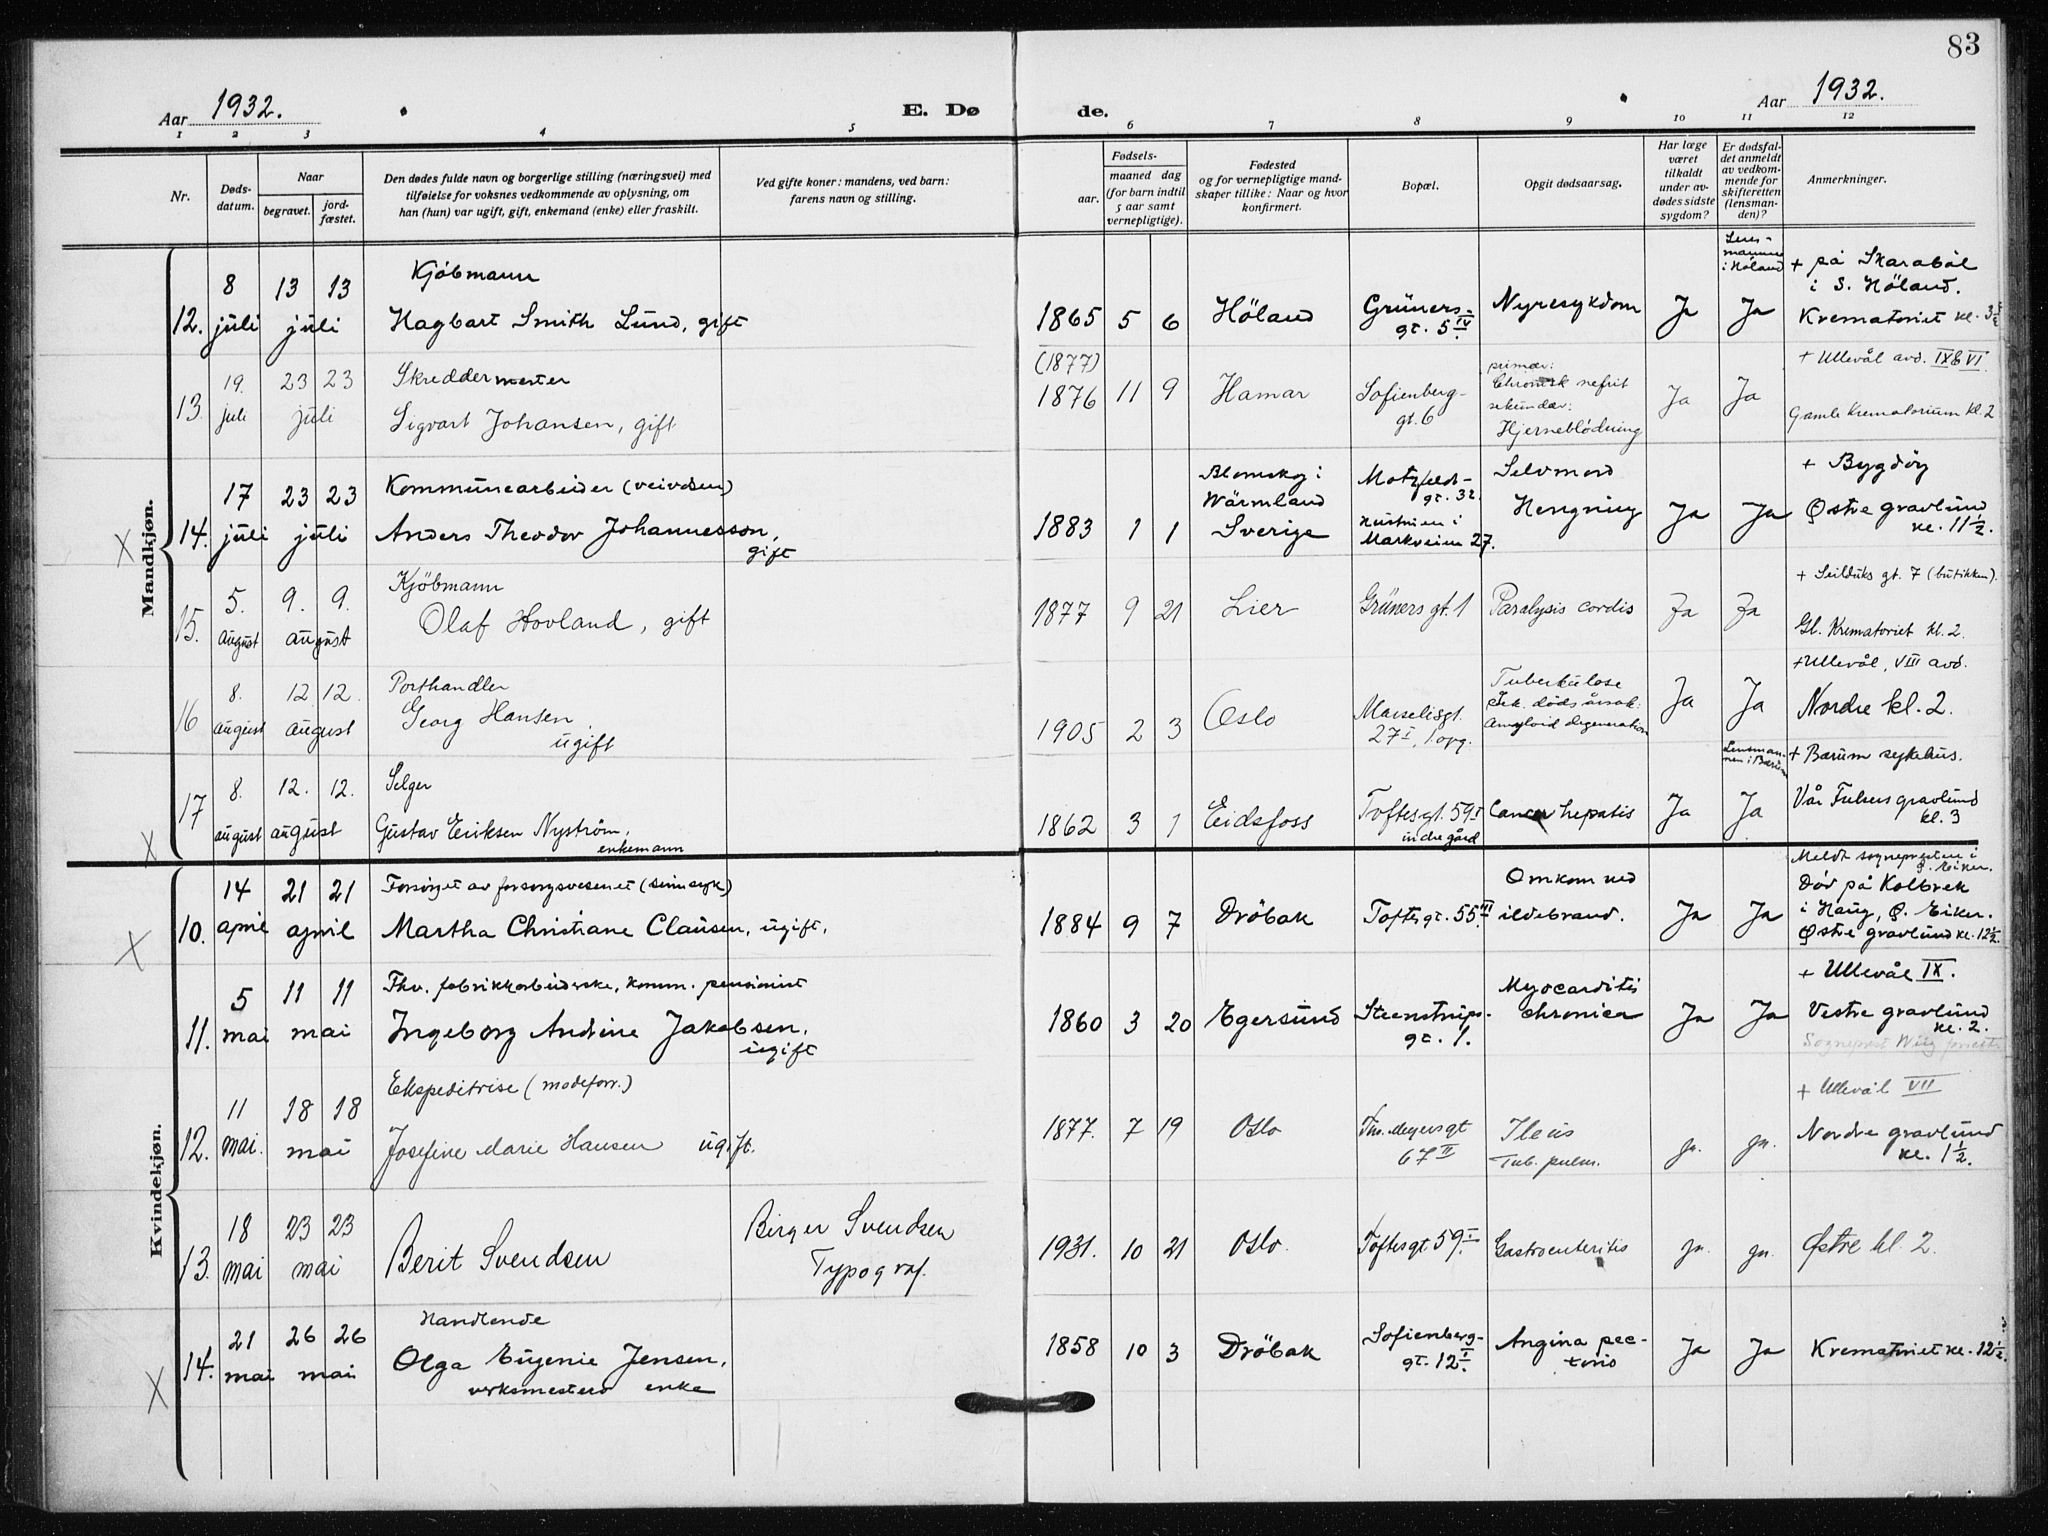 83
Aar 1932.
E. Døde.
Aar 1932.
1 2 3 4 5 6 7 8 9 10 11 12
Nr.
Døds-
datum.
Naar
begravet.
jord-
fæstet.
Den dødes fulde navn og borgerlige stilling (næringsvei) med
tilføielse for voksnes vedkommende av oplysning, om
han (hun) var ugift, gift, enkemand (enke) eller fraskilt.
Ved gifte koner: mandens, ved barn:
farens navn og stilling.
Fødsels-
aar.
maaned dag
(for barn indtil
5 aar samt
vernepligtige).
Fødested
og for vernepligtige mand-
skaper tillike: Naar og hvor
konfirmert.
Bopæl.
Opgit dødsaarsag.
Har læge
været
tilkaldt
under av-
dødes sidste
sygdom?
Er dødsfal-
det anmeldt
av vedkom-
mende for
skifteretten
(lensman-
den)?
Anmerkninger.
Mandkjøn.
12.
8
juli
13 13
juli
Kjöbmann
Hagbart Smith Lund, gift
1865 5 6
Höland
Grüners-
gt. 5 IV
Nyresykdom
Ja
Lens-
mannen
i Höland
Ja
+ på Skaraböl
i S. Höland.
Krematoriet kl. 3½
13.
19.
juli
23 23
juli
Skreddermester
Sigvart Johansen, gift
(1877)
1876 11 9
Hamar
Sofienberg-
gt. 6
primær:
Chronisk nefrit
sekundær:
Hjerneblödning
Ja
Ja
+ Ullevål avd. IX & VI
Gamle Krematorium kl. 2
14.
17
juli
23 23
juli
Kommunearbeider (veivesen)
Anders Theodor Johannesson,
gift
1883 1 1
Blomskog i
Wärmland
Sverige
Motzfeldt-
gt. 32.
Hustruen i
Markveien 27.
Selvmord
Hengning
Ja
Ja
+ Bygdöy
Østre gravlund
kl. 11½.
15.
5.
august
9. 9.
august
Kjöbmann
Olaf Hovland, gift
1877 9 21
Lier
Grüners gt. 1
Paralysis cordis
Ja
Ja
+ Seilduks gt. 7 (butikken).
Gl. Krematoriet kl. 2.
16
8.
august
12 12.
august
Porthandler
Georg Hansen,
ugift
1905 2 3
Oslo
Marselisgt.
27 I, 1. opg.
Tuberkulose
Sek. dødsårsak:
Amyloid degeneration
Ja
Ja
+ Ullevål, VIII avd.
Nordre kl. 2.
17
8.
august
12. 12.
august
Selger
Gustav Eriksen Nyström,
enkemann
1862 3 1
Eidsfoss
Toftesgt. 59 I
indre gård
Cancer hepatis
Ja
Lensman-
nen i Bærum
Ja
+ Bærum sykehus.
Vår Frelsers gravlund
kl. 3
Kvindekjøn.
10.
14
april
21 21
april
Forsörget av forsorgsvesenet (sinnssyk)
Martha Christiane Clausen, ugift.
1884 9 7
Dröbak
Toftesgt. 55 III
Omkom ved
ildebrand.
Ja
Ja
Meldt sognepresten i
Ø. Eiker.
Död på Kolbrek
i Haug, Ø. Eiker.
Østre gravlund kl. 12½.
11.
5
mai
11 11
mai
Fhv. fabrikkarbeiderske, komm. pensionist
Ingeborg Andrine Jakobsen,
ugift
1860 3 20
Egersund
Steenstrups-
gt. 1.
Myocarditis
chronica
Ja
Ja
+ Ullevål IX.
Vestre gravlund
kl. 2.
Sogneprest Wiig
12.
11
mai.
18 18
mai
Ekspeditrise (modeforr.)
Josefine Marie Hansen ugift.
1877. 7 19
Oslo
Th. Meyersgt
67 II
Ileus
Tub. pulm.
ja.
ja.
+ Ullevål VII
Nordre gravlund
kl. 1½.
13.
18
mai
23 23
mai
Berit Svendsen
Birger Svendsen
Typograf.
1931. 10 21
Oslo.
Toftesgt 59 I
Gastroenteritis
ja.
ja.
Østre kl. 2.
14.
21
mai
26 26
mai
Handlende
Olga Eugenie Jensen,
verksmesters enke
1858 10 3
Dröbak
Sofienberg-
gt. 12 I.
Angina pec-
toris
Ja
Ja
Krematoriet kl. 12½.